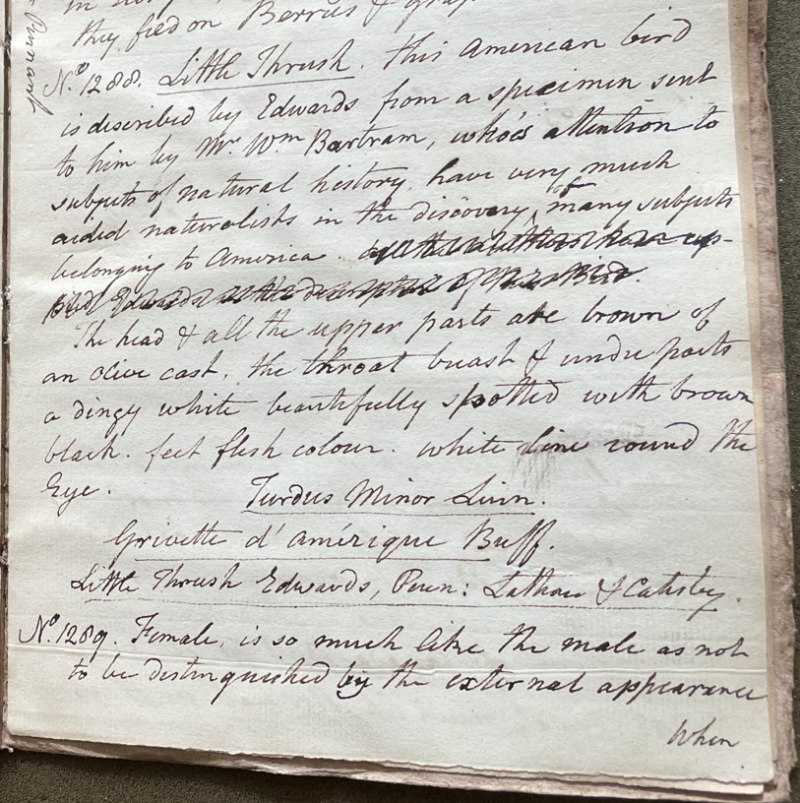 they fied on Berries &
No. 1288. Little Thrush. this American bird
is described by Edwards from a specimen sent
to him by Mr. Wm Bartram, who's attention to
subjects of natural history, have very much
aided naturalists in the discovery of many subjects
belonging to America.
The head & all the upper parts are brown of
an olive cast. the throat breast & under parts
a dingy white beautifully spotted with brown
black. feet flesh colour. white line round the
Eye.
Turdus Minor Linn.
Grivette d'amérique Buff.
Little Thrush Edwards, Penn: Latham & Catesby.
No. 1289. Female, is so much like the male as not
to be distinguished by the external appearance
When